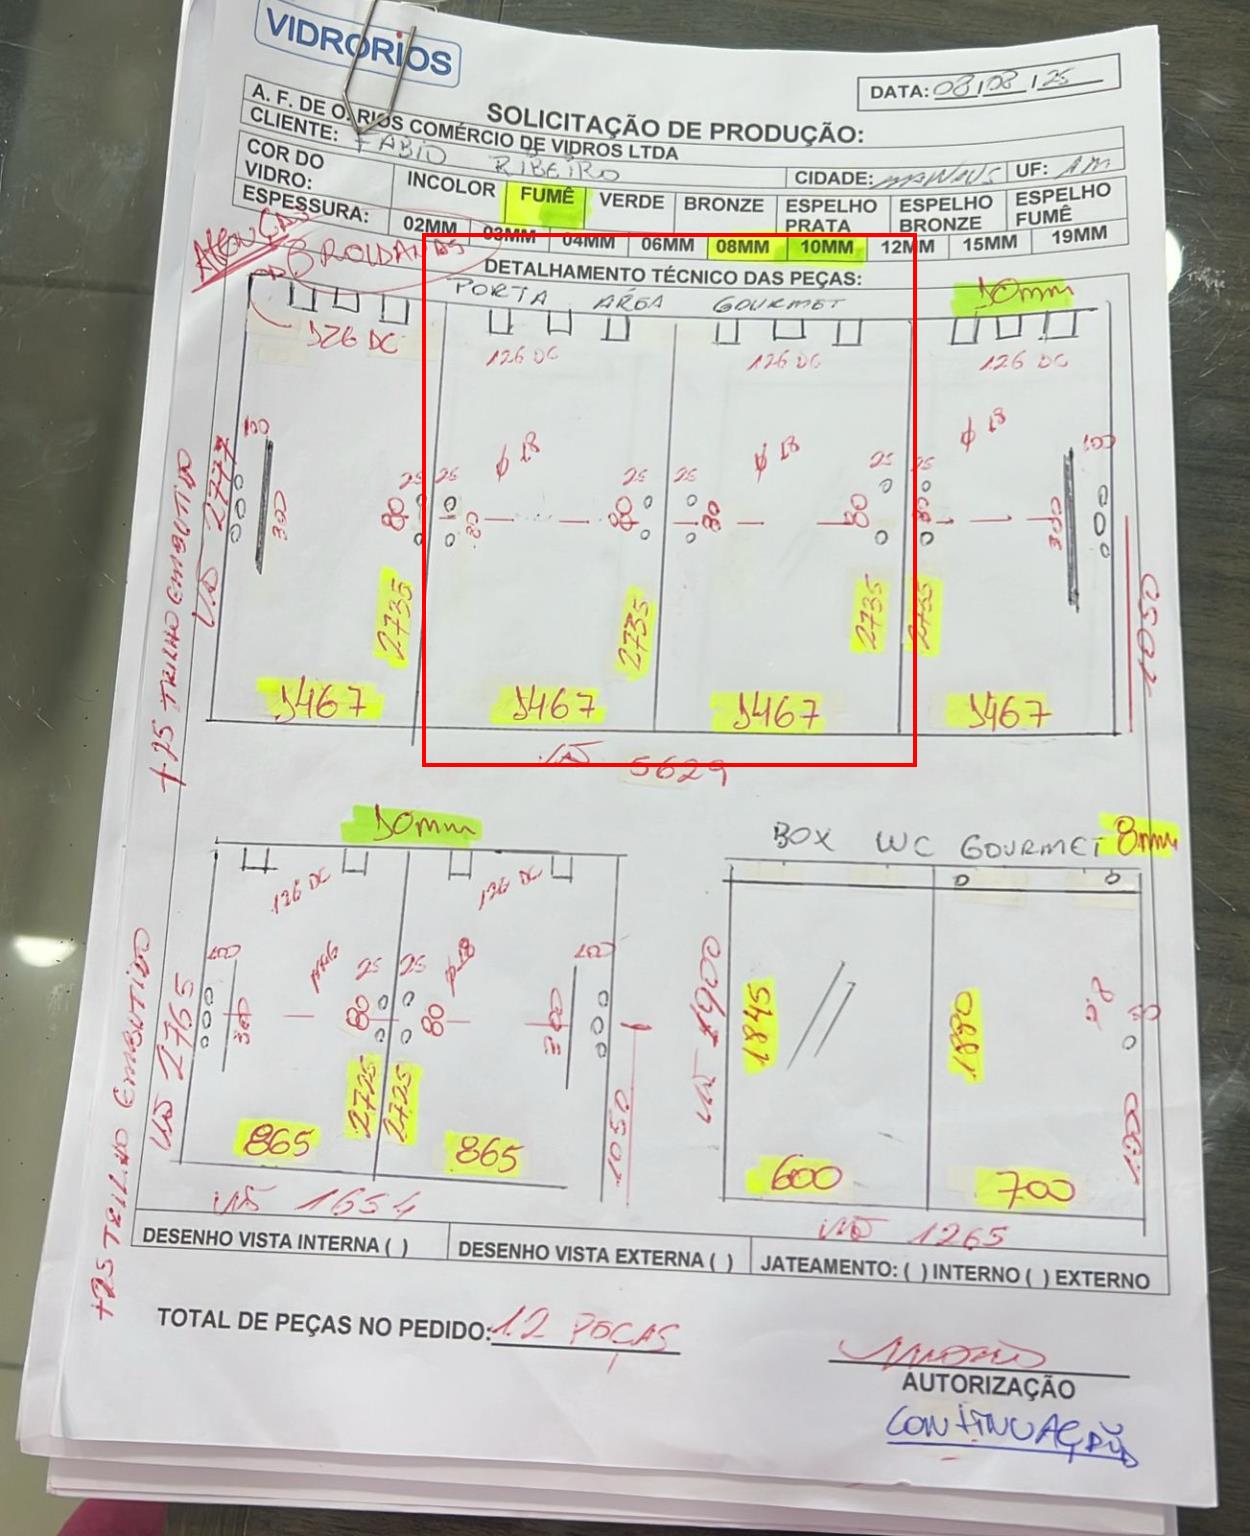 VIDRORIOS
DATA: 08/08/25
SOLICITAÇÃO DE PRODUÇÃO:
A. F. DE O. RIOS COMÉRCIO DE VIDROS LTDA
CLIENTE: FABIO RIBEIRO
CIDADE: MANAUS UF: AM
COR DO VIDRO: INCOLOR FUMÊ VERDE BRONZE ESPELHO PRATA ESPELHO BRONZE ESPELHO FUMÊ
ESPESSURA: 02MM 03MM 04MM 06MM 08MM 10MM 12MM 15MM 19MM
ATENÇÃO 3 ROLDANAS
DETALHAMENTO TÉCNICO DAS PEÇAS:
PORTA ÁREA GOURMET 10mm
126 DC 126 DC 126 DC 126 DC
Vão 2777
+25 TRILHO EMBUTIDO
100 300 25 80 25 80 ϕ 18 25 80 25 80 ϕ 18 25 80 25 80 ϕ 18 300 100
2735 2735 2735 2735
1050
1467 1467 1467 1467
Vão 5629
10mm
126 DC 126 DC
Vão 2765
+25 TRILHO EMBUTIDO
100 300 25 80 25 80 ϕ 18 300 100
2725 2725
1050
865 865
Vão 1654
BOX WC GOURMET 8mm
Vão 1900
1845 1880
50
600 700
Vão 1265
DESENHO VISTA INTERNA ( ) DESENHO VISTA EXTERNA ( ) JATEAMENTO: ( ) INTERNO ( ) EXTERNO
TOTAL DE PEÇAS NO PEDIDO: 12 PEÇAS
AUTORIZAÇÃO
CONTINUAÇÃO